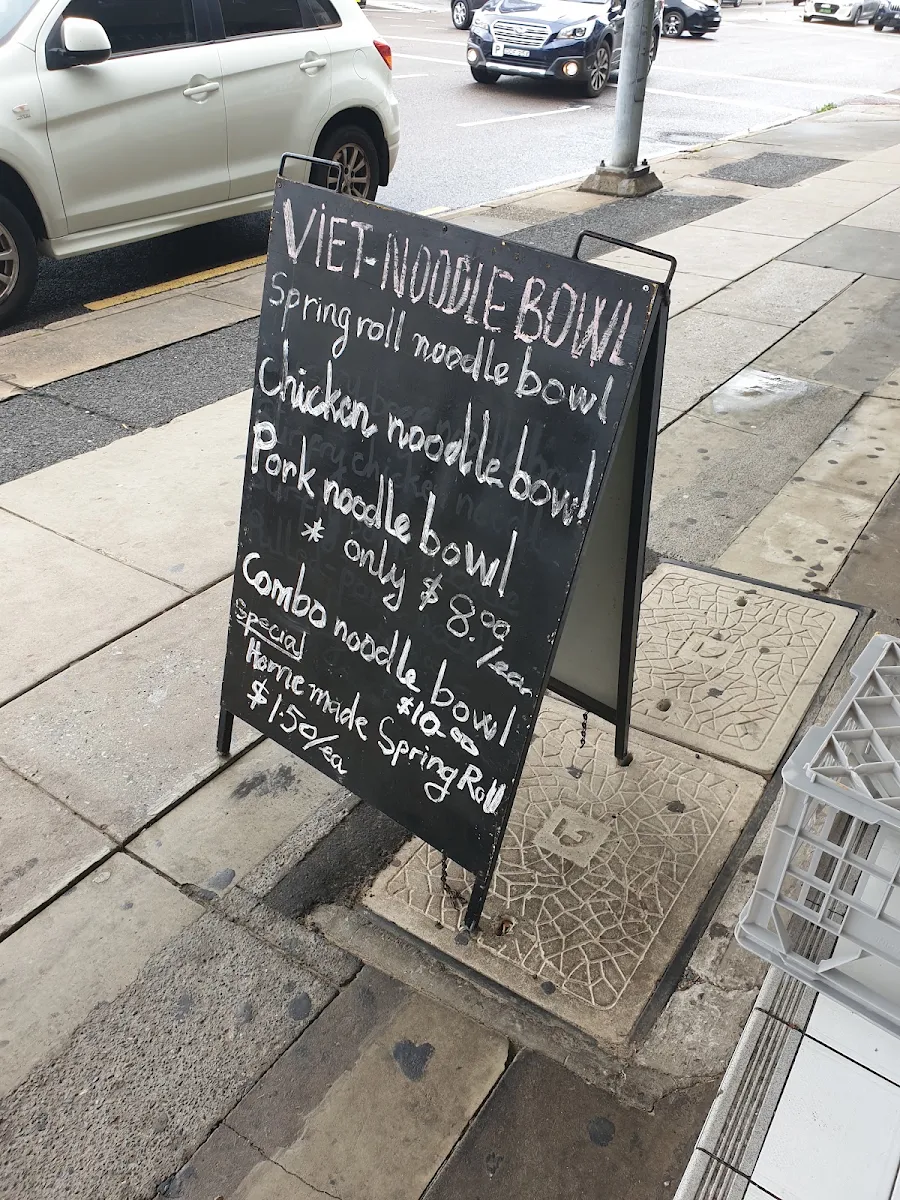 VIET-NOODLE BOWL
Spring roll noodle bowl
Chicken noodle bowl
Pork noodle bowl
* only $8.00/ea
Combo noodle bowl
$10.00
Special
Home made Spring Roll
$1.50/ea